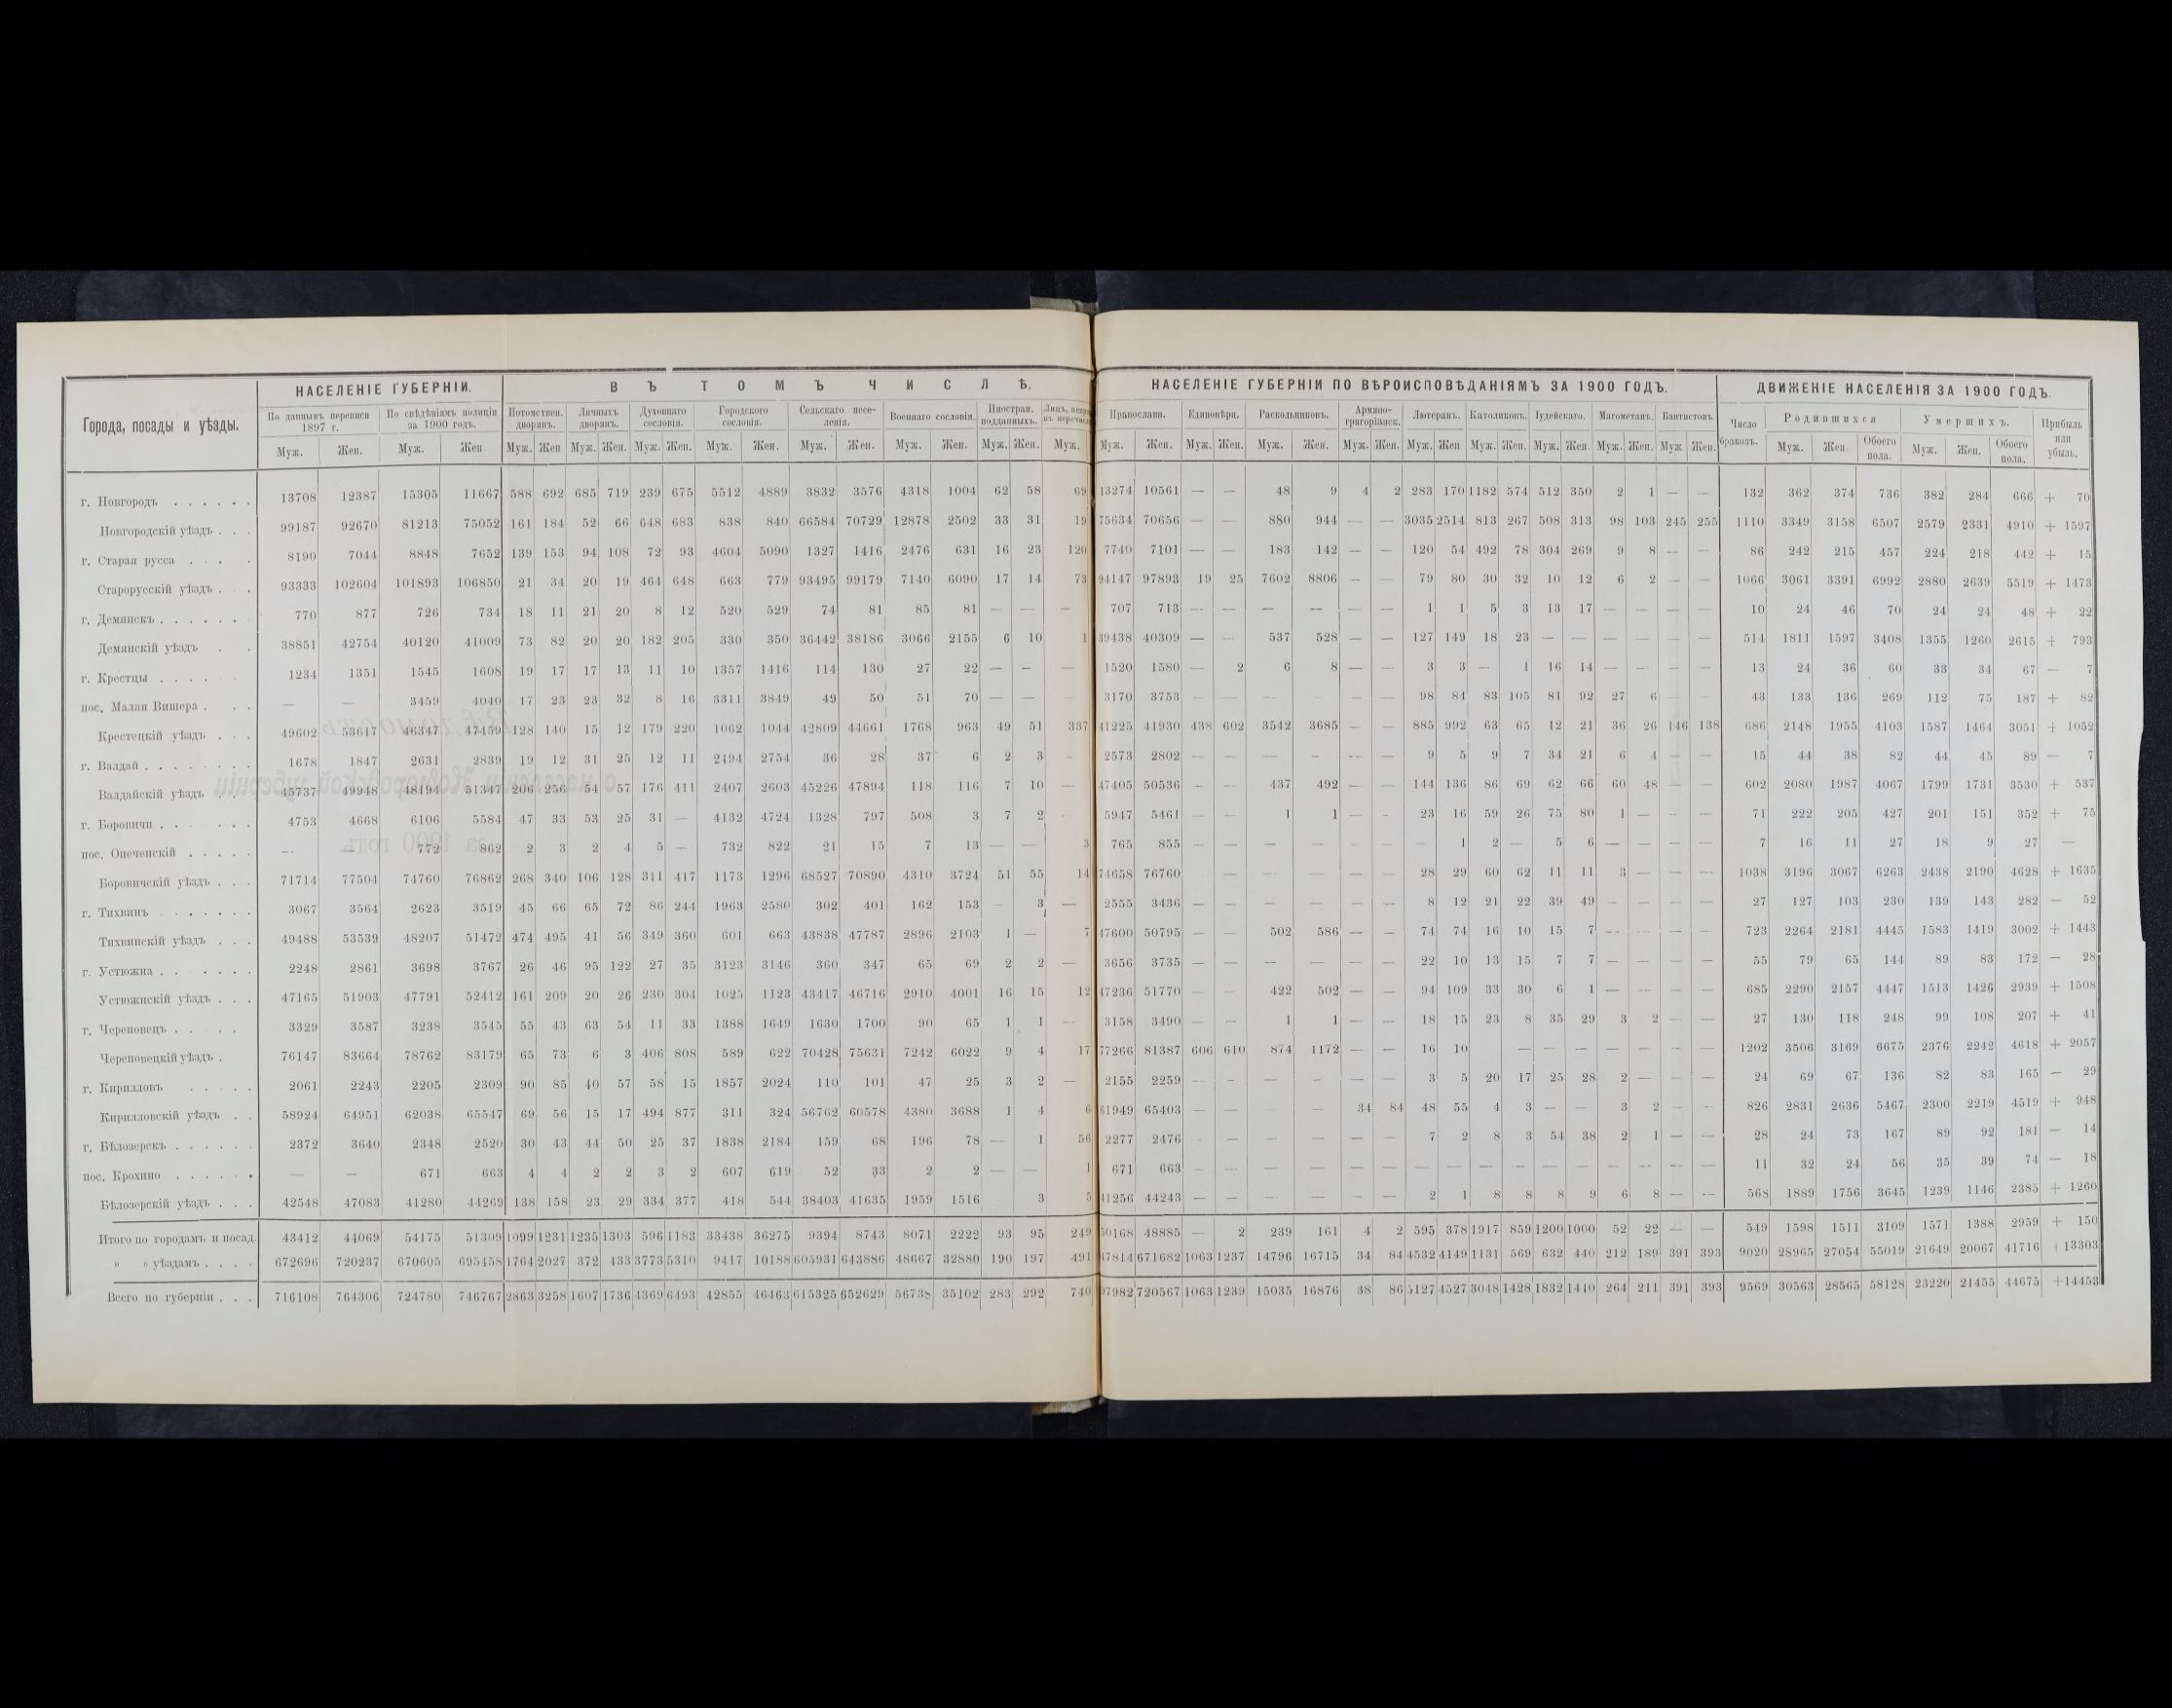 НАСЕЛЕНІЕ ГУБЕРНІИ. В Ъ Т О М Ъ Ч И С Л Ѣ. НАСЕЛЕНІЕ ГУБЕРНІИ ПО ВѢРОИСПОВѢДАНІЯМЪ ЗА 1900 ГОДЪ. ДВИЖЕНІЕ НАСЕЛЕНІЯ ЗА 1900 ГОДЪ.
Города, посады и уѣзды. По даннымъ переписи 1897 г. По свѣдѣніямъ полиціи за 1900 годъ. Потомствен. дворянъ. Личныхъ дворянъ. Духовнаго сословія. Городского сословія. Сельскаго насе-ленія. Военнаго сословія. Иностран. подданныхъ. Православн. Единовѣрц. Раскольниковъ. Армяно-григоріанск. Лютеранъ. Католиковъ. Іудейскаго. Магометанъ. Баптистовъ. Число браковъ. Родившихся Умершихъ. Прибыль или убыль.
Муж. Жен. Муж. Жен. Муж. Жен Муж. Жен. Муж. Жен. Муж. Жен. Муж. Жен. Муж. Жен. Муж. Жен. Муж. Муж. Жен. Муж. Жен. Муж. Жен. Муж. Жен. Муж. Жен Муж. Жен. Муж. Жен. Муж. Жен. Муж Жен. Муж. Жен Обоего пола. Муж. Жен. Обоего пола.
г. Новгородъ 13708 12387 15305 11667 588 692 685 719 239 675 5512 4889 3832 3576 4318 1004 62 58 69 13274 10561 — — 48 9 4 2 283 170 1182 574 512 350 2 1 — — 132 362 374 736 382 284 666 + 70
Новгородскій уѣздъ 99187 92670 81213 75052 161 184 52 66 648 683 838 840 66584 70729 12878 2502 33 31 19 75634 70656 — — 880 944 — — 3035 2514 813 267 508 313 98 103 245 255 1110 3349 3158 6507 2579 2331 4910 + 1597
г. Старая русса 8190 7044 8848 7652 139 153 94 108 72 93 4604 5090 1327 1416 2476 631 16 23 120 7740 7101 — — 183 142 — — 120 54 492 78 304 269 9 8 — — 86 242 215 457 224 218 442 + 15
Старорусскій уѣздъ 93333 102604 101893 106850 21 34 20 19 464 648 663 779 93495 99179 7140 6090 17 14 73 94147 97893 19 25 7602 8806 — — 79 80 30 32 10 12 6 2 — — 1066 3061 3391 6992 2880 2639 5519 + 1473
г. Демянскъ 770 877 726 734 18 11 21 20 8 12 520 529 74 81 85 81 — — — 707 713 — — — — — — 1 1 5 3 13 17 — — — — 10 24 46 70 24 24 48 + 22
Демянскій уѣздъ 38851 42754 40120 41009 73 82 20 20 182 205 330 350 36442 38186 3066 2155 6 10 1 39438 40309 — — 537 528 — — 127 149 18 23 — — — — — — 514 1811 1597 3408 1355 1260 2615 + 793
г. Крестцы 1234 1351 1545 1608 19 17 17 13 11 10 1357 1416 114 130 27 22 — — — 1520 1580 — 2 6 8 — — 3 3 — 1 16 14 — — — — 13 24 36 60 33 34 67 — 7
пос. Малая Вишера — — 3459 4040 17 23 23 32 8 16 3311 3849 49 50 51 70 — — — 3170 3753 — — — — — 98 84 83 105 81 92 27 6 — — 43 133 136 269 112 75 187 + 82
Крестецкій уѣздъ 49602 53617 46347 47459 128 140 15 12 179 220 1062 1044 42809 44661 1768 963 49 51 337 41225 41930 438 602 3542 3685 — — 885 992 63 65 12 21 36 26 146 138 686 2148 1955 4103 1587 1464 3051 + 1052
г. Валдай 1678 1847 2631 2839 19 12 31 25 12 11 2494 2754 36 28 37 6 2 3 — 2573 2802 — — — — — — 9 5 9 7 34 21 6 4 — — 15 44 38 82 44 45 89 — 7
Валдайскій уѣздъ 45737 49948 48194 51347 206 256 54 57 176 411 2407 2603 45226 47894 118 116 7 10 — 47405 50536 — — 437 492 — — 144 136 86 69 62 66 60 48 — — 602 2080 1987 4067 1799 1731 3530 + 537
г. Боровичи 4753 4668 6106 5584 47 33 53 25 31 — 4132 4724 1328 797 508 3 7 2 — 5947 5461 — — 1 1 — — 23 16 59 26 75 80 1 — — — 71 222 205 427 201 151 352 + 75
пос. Опеченскій — — 772 862 2 3 2 4 5 — 732 822 21 15 7 13 — — 3 765 855 — — — — — — — 1 2 — 5 6 — — — — 7 16 11 27 18 9 27 —
Боровичскій уѣздъ 71714 77504 74760 76862 268 340 106 128 311 417 1173 1296 68527 70890 4310 3724 51 55 14 74658 76760 — — — — — 28 29 60 62 11 11 3 — — — 1038 3196 3067 6263 2438 2190 4628 + 1635
г. Тихвинъ 3067 3564 2623 3519 45 66 65 72 86 244 1963 2580 302 401 162 153 — 3 — 2555 3436 — — — — — — 8 12 21 22 39 49 — — — — 27 127 103 230 139 143 282 — 52
Тихвинскій уѣздъ 49488 53539 48207 51472 474 495 41 56 349 360 601 663 43838 47787 2896 2103 1 — 7 47600 50795 — — 502 586 — — 74 74 16 10 15 7 — — — — 723 2264 2181 4445 1583 1419 3002 + 1443
г. Устюжна 2248 2861 3698 3767 26 46 95 122 27 35 3123 3146 360 347 65 69 2 2 — 3656 3735 — — — — — — 22 10 13 15 7 7 — — — — 55 79 65 144 89 83 172 — 28
Устюжнскій уѣздъ 47165 51903 47791 52412 161 209 20 26 230 304 1025 1123 43417 46716 2910 4001 16 15 12 47236 51770 — — 422 502 — — 94 109 33 30 6 1 — — — — 685 2290 2157 4447 1513 1426 2939 + 1508
г. Череповецъ 3329 3587 3238 3545 55 43 63 54 11 33 1388 1649 1630 1700 90 65 1 1 — 3158 3490 — — 1 1 — — 18 15 23 8 35 29 3 2 — — 27 130 118 248 99 108 207 + 41
Череповецкій уѣздъ 76147 83664 78762 83179 65 73 6 3 406 808 589 622 70428 75631 7242 6022 9 4 17 77266 81387 606 610 874 1172 — — 16 10 — — — — — — — 1202 3506 3169 6675 2376 2242 4618 + 2057
г. Кирилловъ 2061 2243 2205 2309 90 85 40 57 58 15 1857 2024 110 101 47 25 3 2 — 2155 2259 — — — — — — 3 5 20 17 25 28 2 — — — 24 69 67 136 82 83 165 — 29
Кирилловскій уѣздъ 58924 64951 62038 65547 69 56 15 17 494 877 311 324 56762 60578 4380 3688 1 4 6 61949 65403 — — — — 34 84 48 55 4 3 — — 3 2 — — 826 2831 2636 5467 2300 2219 4519 + 948
г. Бѣлозерскъ 2372 3640 2348 2520 30 43 44 50 25 37 1838 2184 159 68 196 78 — 1 56 2277 2476 — — — — — — 7 2 8 3 54 38 2 1 — — 28 24 73 167 89 92 181 — 14
пос. Крохино — — 671 663 4 4 2 2 3 2 607 619 52 33 2 2 — — 1 671 663 — — — — — — — — — — — — — — — — 11 32 24 56 35 39 74 — 18
Бѣлозерскій уѣздъ 42548 47083 41280 44269 138 158 23 29 334 377 418 544 38403 41635 1959 1516 3 5 41256 44243 — — — — — — 2 1 8 8 8 9 6 8 — — 568 1889 1756 3645 1239 1146 2385 + 1260
Итого по городамъ и посад. 43412 44069 54175 51309 1099 1231 1235 1303 596 1183 33438 36275 9394 8743 8071 2222 93 95 249 50168 48885 — 2 239 161 4 2 595 378 1917 859 1200 1000 52 22 — — 549 1598 1511 3109 1571 1388 2959 + 150
» » уѣздамъ 672696 720237 670605 695458 1764 2027 372 433 3773 5310 9417 10188 605931 643886 48667 32880 190 197 491 47814 671682 1063 1237 14796 16715 34 84 4532 4149 1131 569 632 440 212 189 391 393 9020 28965 27054 55019 21649 20067 41716 + 13303
Всего по губерніи 716108 764306 724780 746767 2863 3258 1607 1736 4369 6493 42855 46463 615325 652629 56738 35102 283 292 740 97982 720567 1063 1239 15035 16876 38 86 5127 4527 3048 1428 1832 1410 264 211 391 393 9569 30563 28565 58128 23220 21455 44675 +14453